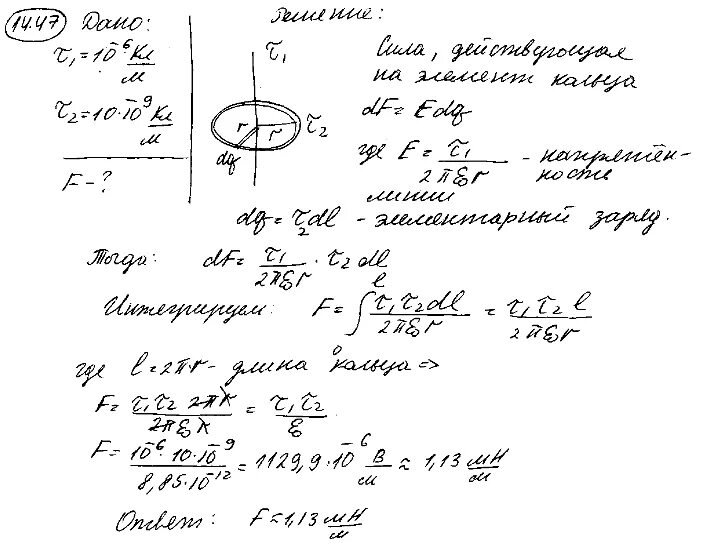 14.47 Дано:
τ₁=10⁻⁶ Кл/м
τ₂=10·10⁻⁹ Кл/м
F-?
Решение:
τ₁
r r τ₂
dq
Сила, действующая
на элемент кольца
dF= Edq
где E = τ₁/2πε₀r - напряжён-
ность
линии
dq = τ₂dl - элементарный заряд.
Тогда: dF= τ₁/2πε₀r · τ₂ dl
Интегрируем: F= ∫₀ˡ τ₁τ₂dl/2πε₀r = τ₁τ₂ l/2πε₀r
где l=2πr - длина кольца =>
F= τ₁τ₂ 2πr/2πε₀r = τ₁τ₂/ε₀
F= 10⁻⁶·10·10⁻⁹/8,85·10⁻¹² = 1129,9·10⁻⁶ В/м ≈ 1,13 мН/м
Ответ: F≈1,13 мН/м